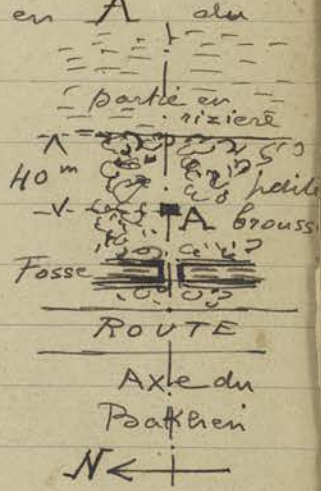 en A du
partie en
rizière
40 m
petite
A brousse
Fosse
ROUTE
Axe du
Bakhen
N